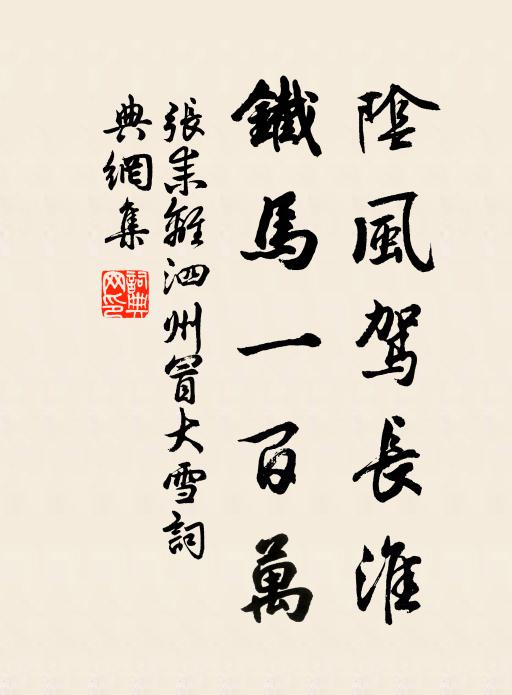 陰風駕長淮
鐵馬一百萬
張耒離泗州冒大雪詞
典網集
詞典網印